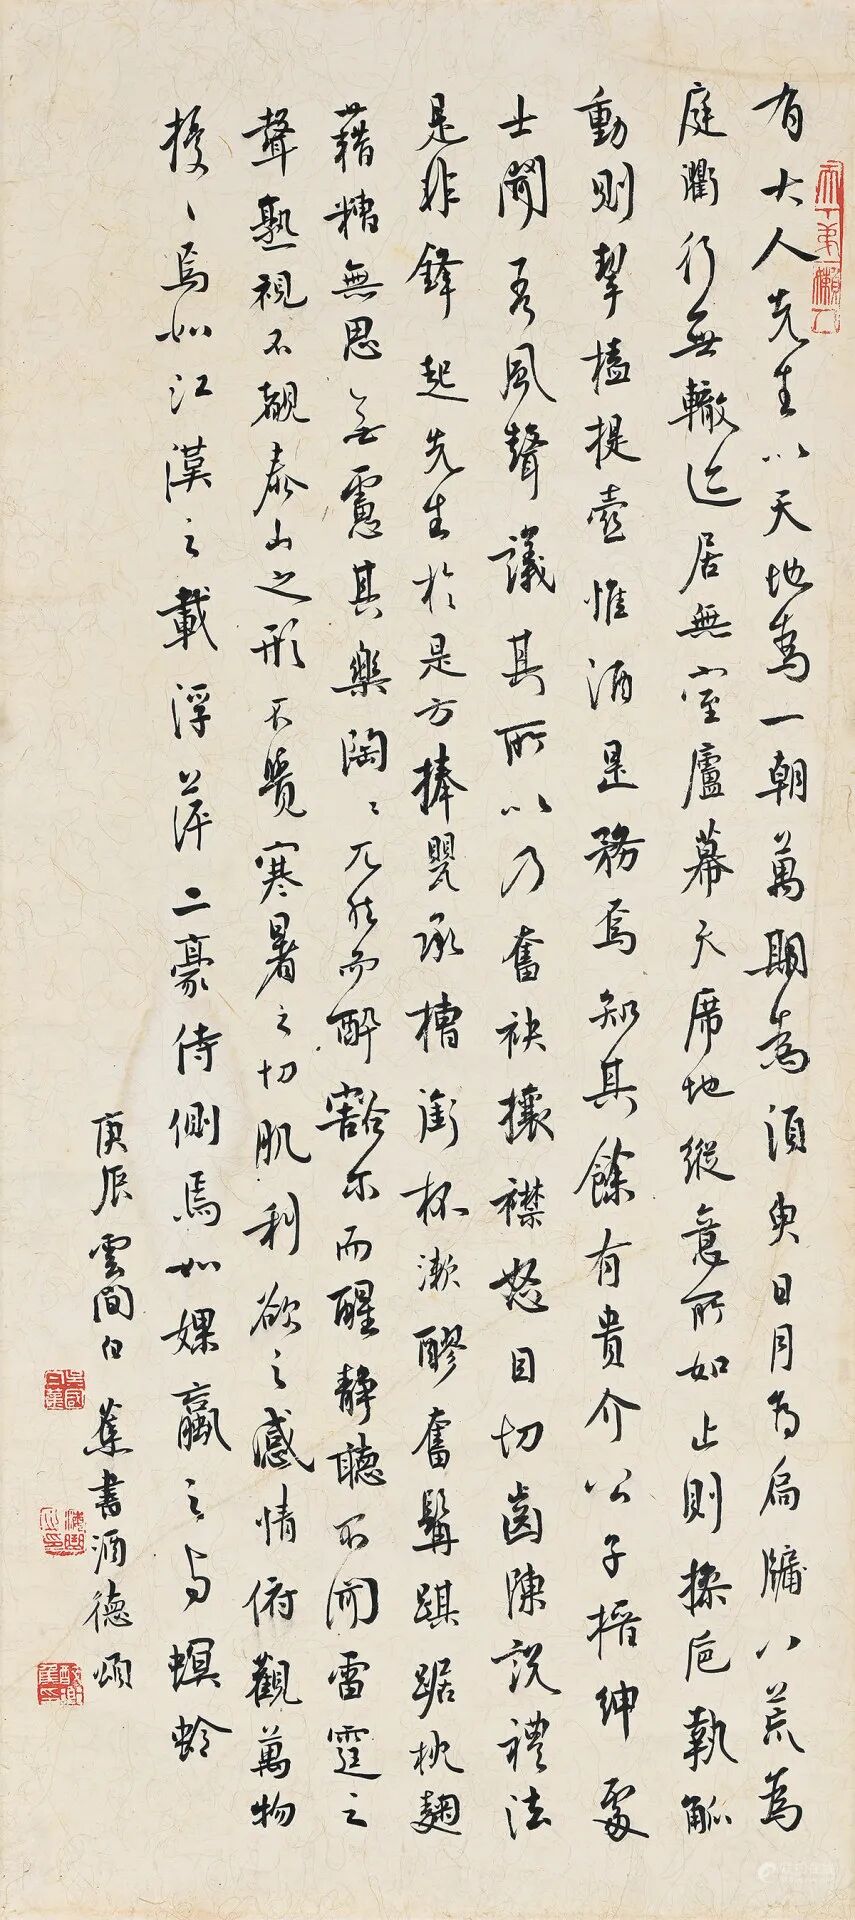 有大人先生以天地為一朝萬期為須臾日月為扃牖八荒為
庭衢行無轍迹居無室廬幕天席地縱意所如止則操卮執觚
動則挈榼提壺惟酒是務焉知其餘有貴介公子搢紳處
士聞吾風聲議其所以乃奮袂攘襟怒目切齒陳說禮法
是非鋒起先生於是方捧罌承槽銜杯漱醪奮髯踑踞枕麴
藉糟無思無慮其樂陶〻兀然而醉豁尔而醒靜聽不聞雷霆之
聲熟視不覩泰山之形不覺寒暑之切肌利欲之感情俯觀萬物
擾〻焉如江漢之載浮萍二豪侍側焉如蜾蠃之與螟蛉
庚辰雲間白蕉書酒德頌
天下第一懶人